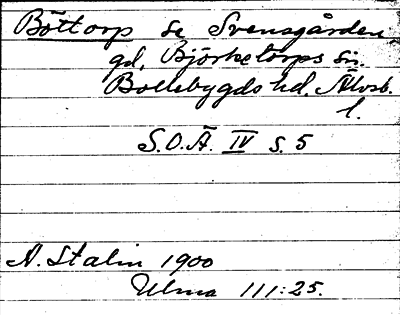 Böttorp se Svensgården
gd, Björketorps sn.
Bollebygds hd. Älvsb.
l.
S.O.Ä. IV s. 5
A. Stalin 1900
Ulma 111:25.